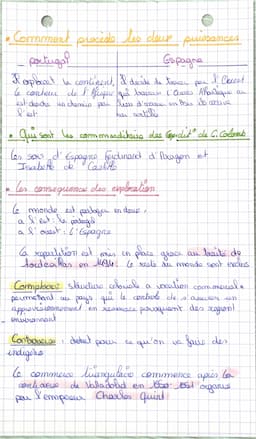 • Comment procède les deux puissances
portugal Espagne
Il explorent le continent, Il decide de passer par l'Ouest
le conteur de l'Afrique qui traverse l'Océan Atlantique
est
l'est aux antilles
• Qui sont les commenditaires des Expedit° de C. Colomb
Les rois d'Espagne Ferdinand d'Aragon et
Isabelle de Castille
• les consequences des exploration
le monde est partager en deux :
a l'est : le portugal
a l'ouest : l'Espagne
la repartition est mis en place grace au traité de
tordesillas en 1494. le reste du monde sont exclus
Comptoire : structure coloniale a vocation commerciale
permetant au pays qui le contrôle de s'assurer un
approvisionnement en ressource provenant des region
environnant
Controverse : debat pour ce qu'on va faire des
indigènes
le commerce triangulaire commence après la
controverse de Valladolid en 1550-1551 organisé
par l'empereur Charles Quint